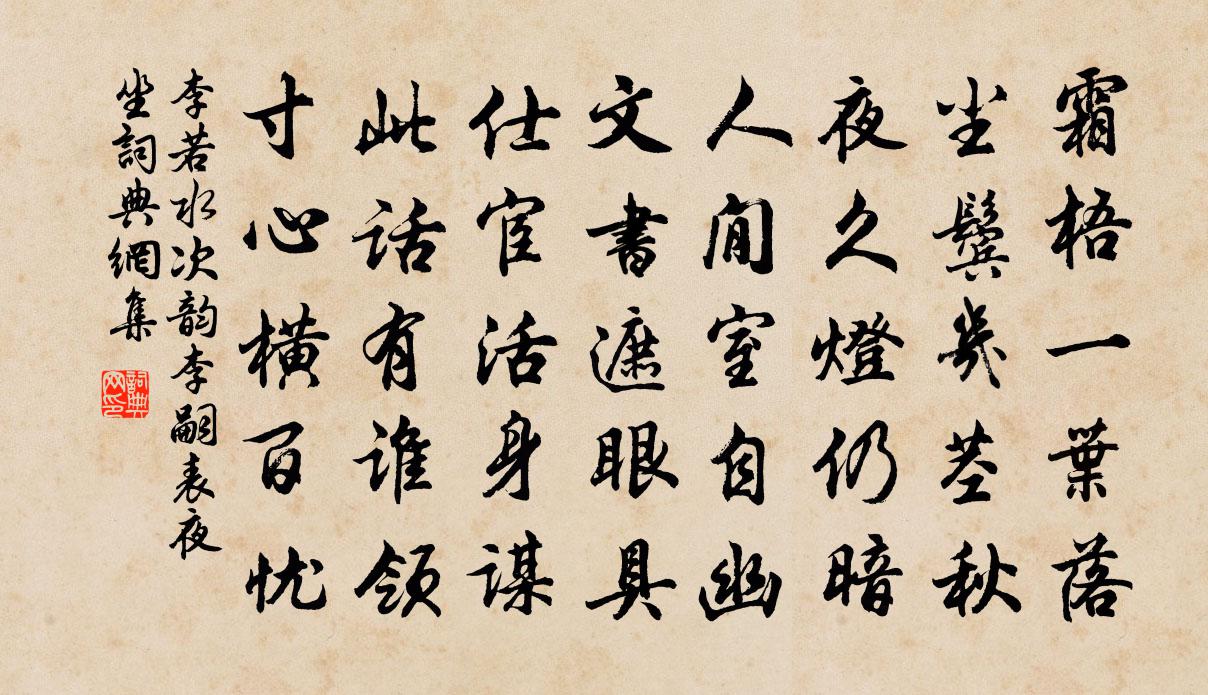 霜梧一葉落
尘鬓幾茎秋
夜久燈仍暗
人閒室自幽
文書遮眼具
仕宦活身谋
此话有谁领
寸心横百忧
李若水次韵李嗣表夜
坐詞典網集
詞典网印